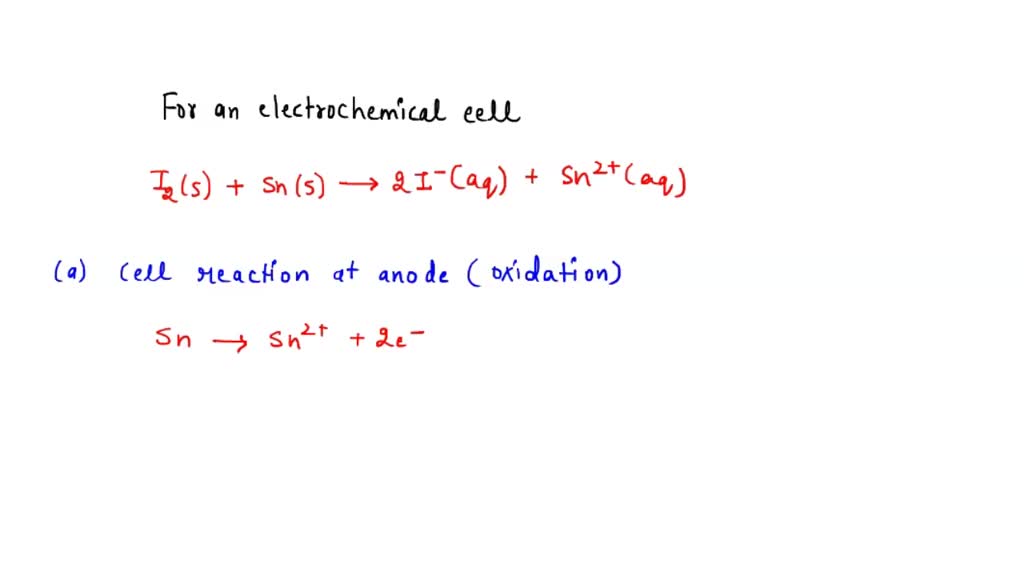 For an electrochemical cell
I₂(s) + Sn(s) → 2I⁻(aq) + Sn²⁺(aq)
(a) Cell reaction at anode (oxidation)
Sn → Sn²⁺ + 2e⁻